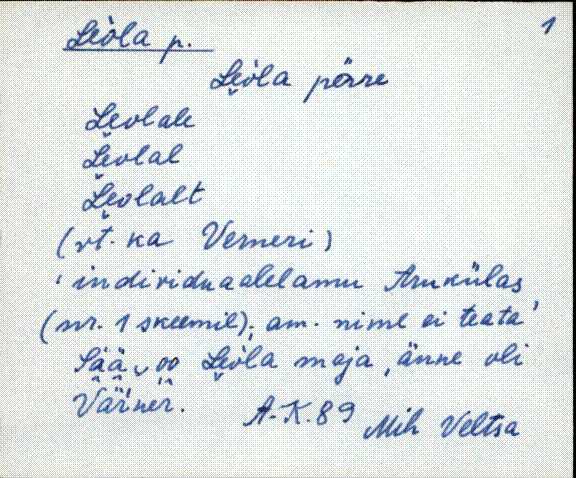 1
Leòla p.
Leòla pöṙre
Leolale
Leolal
Leolalt
(vt. ka Verneri)
'individuaalelamu Arukülas
(nr. 1 skeemil); am. nime ei teata'
Sää oo Leòla maja, änne oli
Värner.
A-K. 89 Mih Veltsa